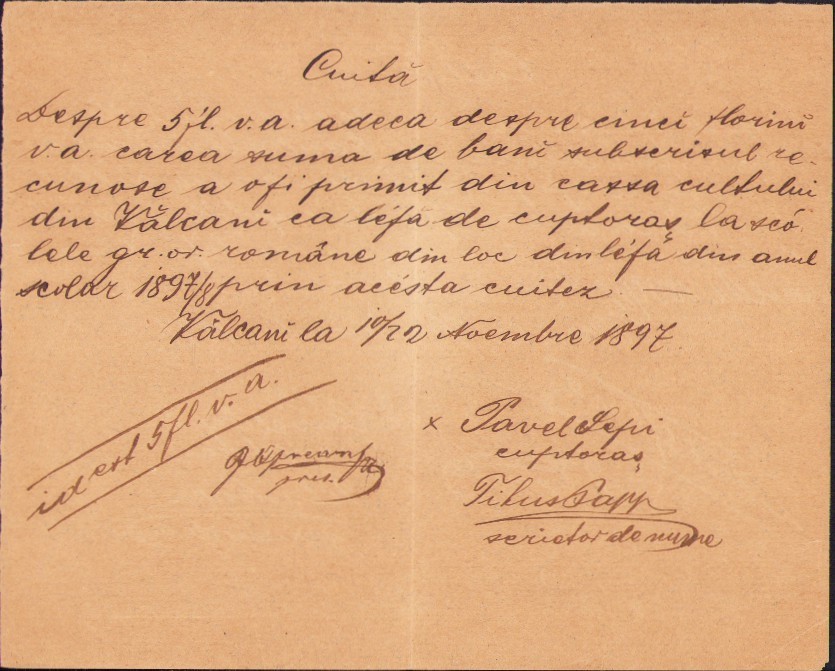 Cuită
Despre 5 fl. v. a. adeca despre cinci florini
v. a. carea suma de bani subscrisul re-
cunosc a o fi primit din cassa cultului
din Vălcani ca léfă de cuptoraș la scó-
lele gr. or. române din loc din léfă din anul
scolar 1897/8 prin acésta cuitez —
Vălcani la 10/22 Noembre 1897.
id est 5 fl. v. a.
pres.
x Pavel Sepi
cuptoraș
Titus Papp
scrietor de nume